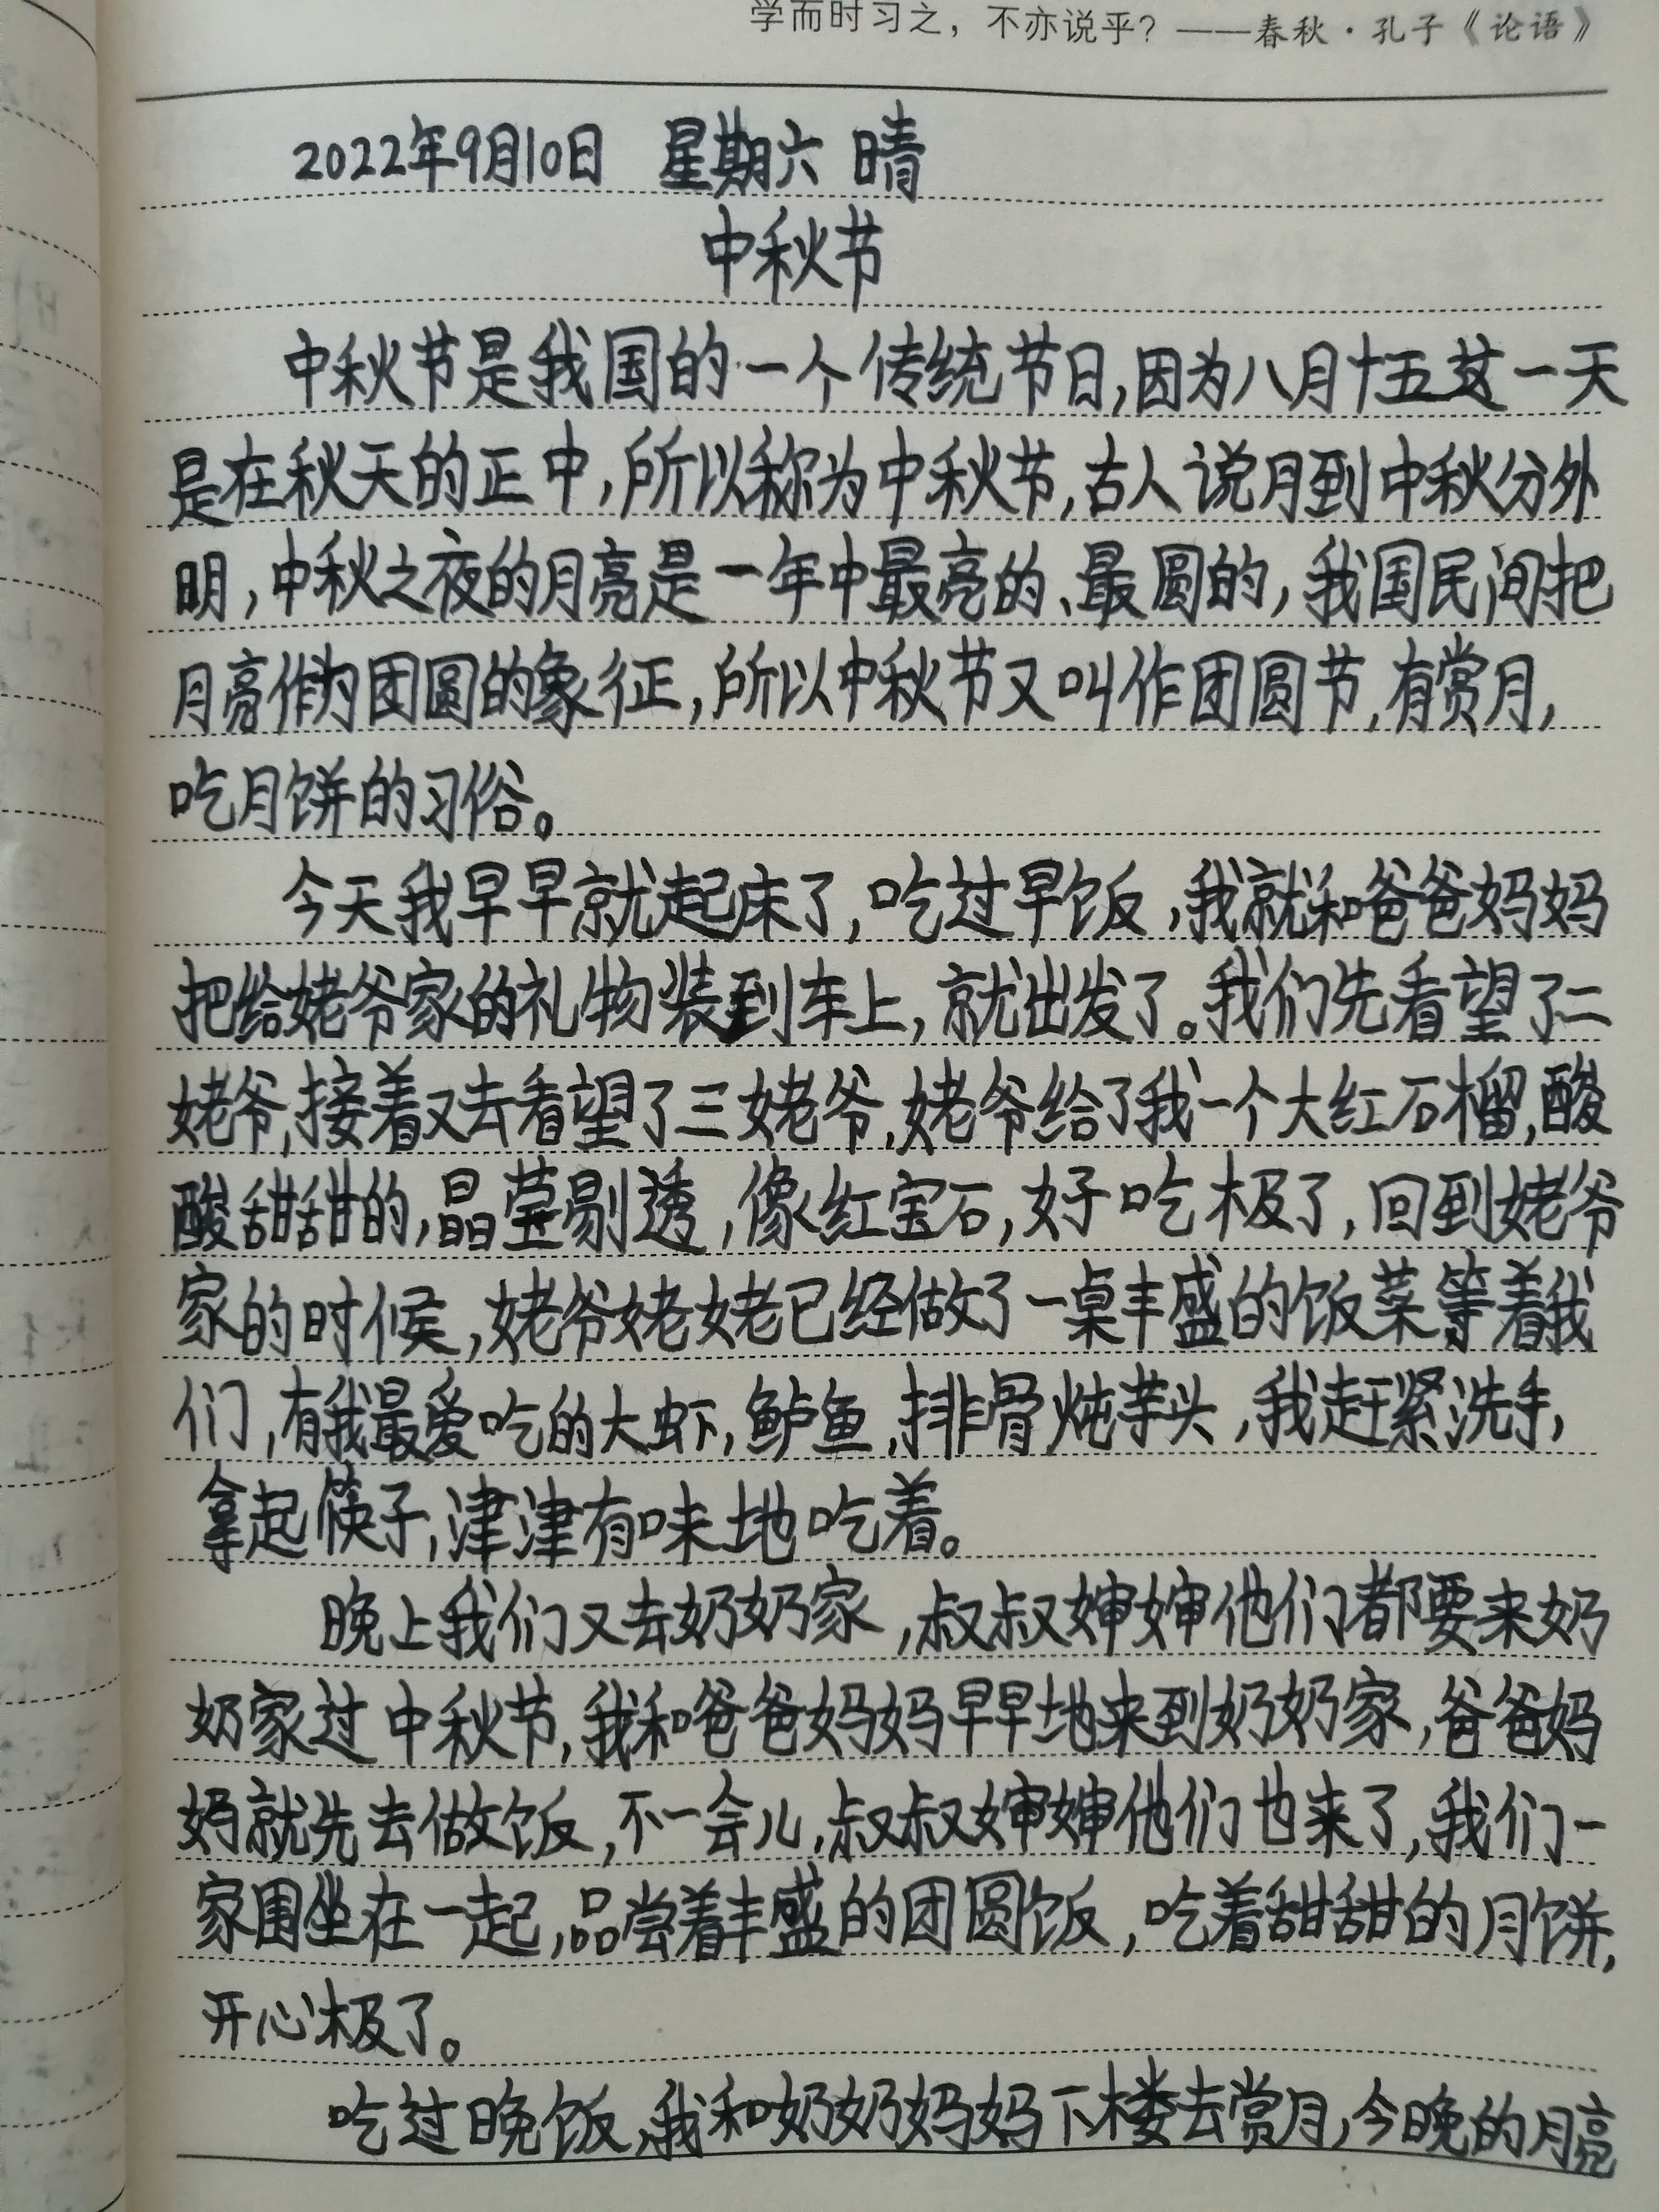 学而时习之，不亦说乎？——春秋·孔子《论语》
2022年9月10日 星期六 晴
中秋节
中秋节是我国的一个传统节日,因为八月十五这一天
是在秋天的正中,所以称为中秋节,古人说月到中秋分外
明,中秋之夜的月亮是一年中最亮的、最圆的,我国民间把
月亮作为团圆的象征,所以中秋节又叫作团圆节,有赏月,
吃月饼的习俗。
今天我早早就起床了,吃过早饭,我就和爸爸妈妈
把给姥爷家的礼物装到车上,就出发了。我们先看望了二
姥爷,接着又去看望了三姥爷,姥爷给了我一个大红石榴,酸
酸甜甜的,晶莹剔透,像红宝石,好吃极了,回到姥爷
家的时候,姥爷姥姥已经做了一桌丰盛的饭菜等着我
们,有我最爱吃的大虾,鲈鱼,排骨炖芋头,我赶紧洗手,
拿起筷子,津津有味地吃着。
晚上我们又去奶奶家,叔叔婶婶他们都要来奶
奶家过中秋节,我和爸爸妈妈早早地来到奶奶家,爸爸妈
妈就先去做饭,不一会儿,叔叔婶婶他们也来了,我们一
家围坐在一起,品尝着丰盛的团圆饭,吃着甜甜的月饼,
开心极了。
吃过晚饭,我和奶奶妈妈下楼去赏月,今晚的月亮